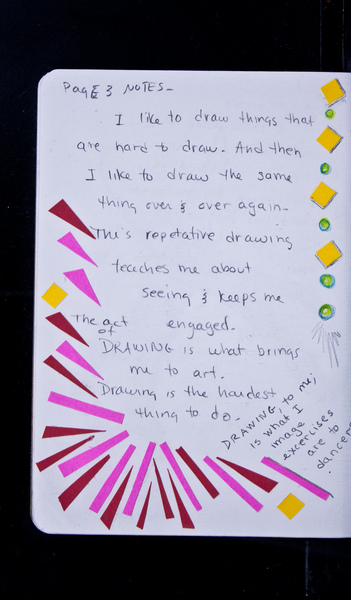 PagE 3 NOTES-
I like to draw things that
are hard to draw. And then
I like to draw the same
thing over & over again.
This repetative drawing
teaches me about
seeing & keeps me
engaged.
The act
of
DRAWING is what brings
me to art.
Drawing is the hardest
thing to do.
DRAWING, to me,
is what I
image
excercises
are to
dancers.